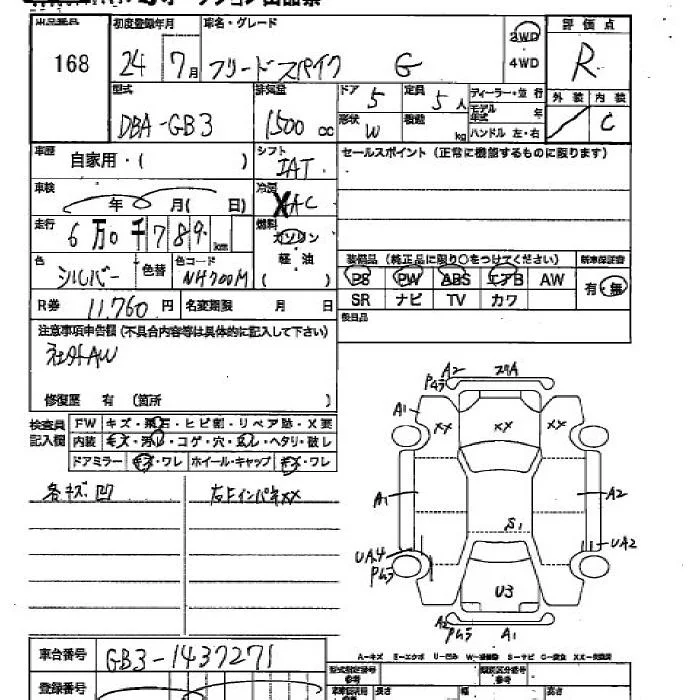 168
初度登録年月 車名・グレード 評価点
24年 7月 フリードスパイク G 2WD 4WD R
型式 排気量 ドア 定員 外装 内装
DBA-GB3 1500cc 5 5人 ディーラー・並行 C
形状 W 積載 kg モデル年式 年 ハンドル 左・右
車歴 自家用・( ) シフト IAT セールスポイント (正常に機能するものに限ります)
車検 年 月( 日) 冷房 AC
走行 6万0千789km 燃料 ガソリン 軽油 ( )
色 シルバー 色替 色コード NH700M
装備品 (純正品に限り○をつけてください) 新車保証書
PS PW ABS エアB AW 有・無
SR ナビ TV カワ
R券 11,760円 名変期限 月 日 後日品
注意事項申告欄 (不具合内容等は具体的に記入して下さい)
社外AW
修復歴 有 (箇所 )
検査員記入欄
FW キズ・飛石・ヒビ割・リペア跡・X要
内装 キズ・汚れ・コゲ・穴・ヘタリ・破レ
ドアミラー キズ・ワレ ホイール・キャップ キズ・ワレ
各キズ凹 右FインパネXX
A2 Pムラ
A1 XX XX XX
A1 A2
S1
UA4 Pムラ UA2
U3
A2 Pムラ A1
車台番号 GB3-1437271
A-キズ E-エクボ U-凹み S-サビ
登録番号
型式指定番号 参考 類別区分番号 参考
長さ 幅 高さ